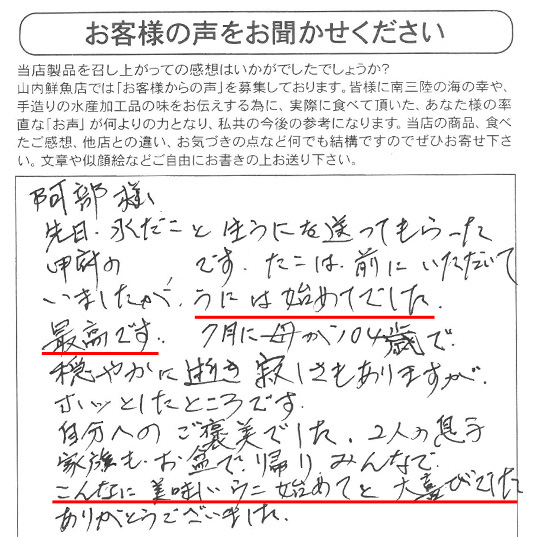 お客様の声をお聞かせください
当店製品を召し上がっての感想はいかがでしたでしょうか？
山内鮮魚店では「お客様からの声」を募集しております。皆様に南三陸の海の幸や、
手造りの水産加工品の味をお伝えする為に、実際に食べて頂いた、あなた様の率
直な「お声」が何よりの力となり、私共の今後の参考になります。当店の商品、食べ
たご感想、他店との違い、お気づきの点など何でも結構ですのでぜひお寄せ下さ
い。文章や似顔絵などご自由にお書きの上お送り下さい。
阿部様、
先日、水だこと ほうにを送ってもらった
甲計の です。たこは、前にいただいて
いましたが、うには始めてでした。
最高です。 7月に母が104歳で
穏やかに逝き 寂しさもありますが、
ホッとしたところです。
自分へのご褒美でした。2人の息子
家族も、お盆で帰り、みんなで、
こんなに美味しいうに始めてと大喜びでした
ありがとうございました。